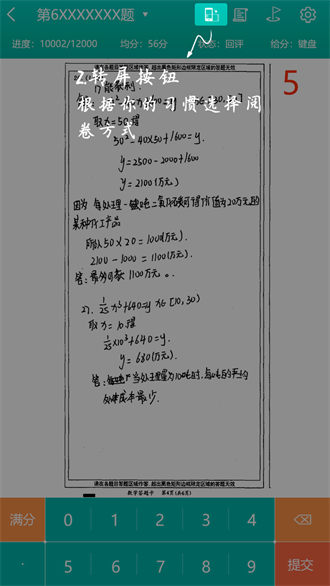 第6XXXXXXX题
进度：10002/12000 均分：56分 状态：回评 给分：键盘
请在各题目答题区域作答，超出黑色矩形边框限定区域的答案无效
5
2.转屏按钮
根据你的习惯选择阅
卷方式
取x=50得
50²-40×50+1600=y.
y=2500-2000+1600
y=2100(万元)
因为每处理一吨二氧化碳可得价值为20万元的
某种化工产品
所以50×20=1000(万元).
2100-1000=1100(万元).
答：最多亏损1100万元。
2). 1/25x³+640=y x∈[10,30)
取x=10得
1/25×10³+640=y.
y=680(万元).
请在各题目答题区域作答，超出黑色矩形边框限定区域的答案无效
数学答题卡 第4页(共6页)
满分 0 1 2 3 4
· 5 6 7 8 9 提交